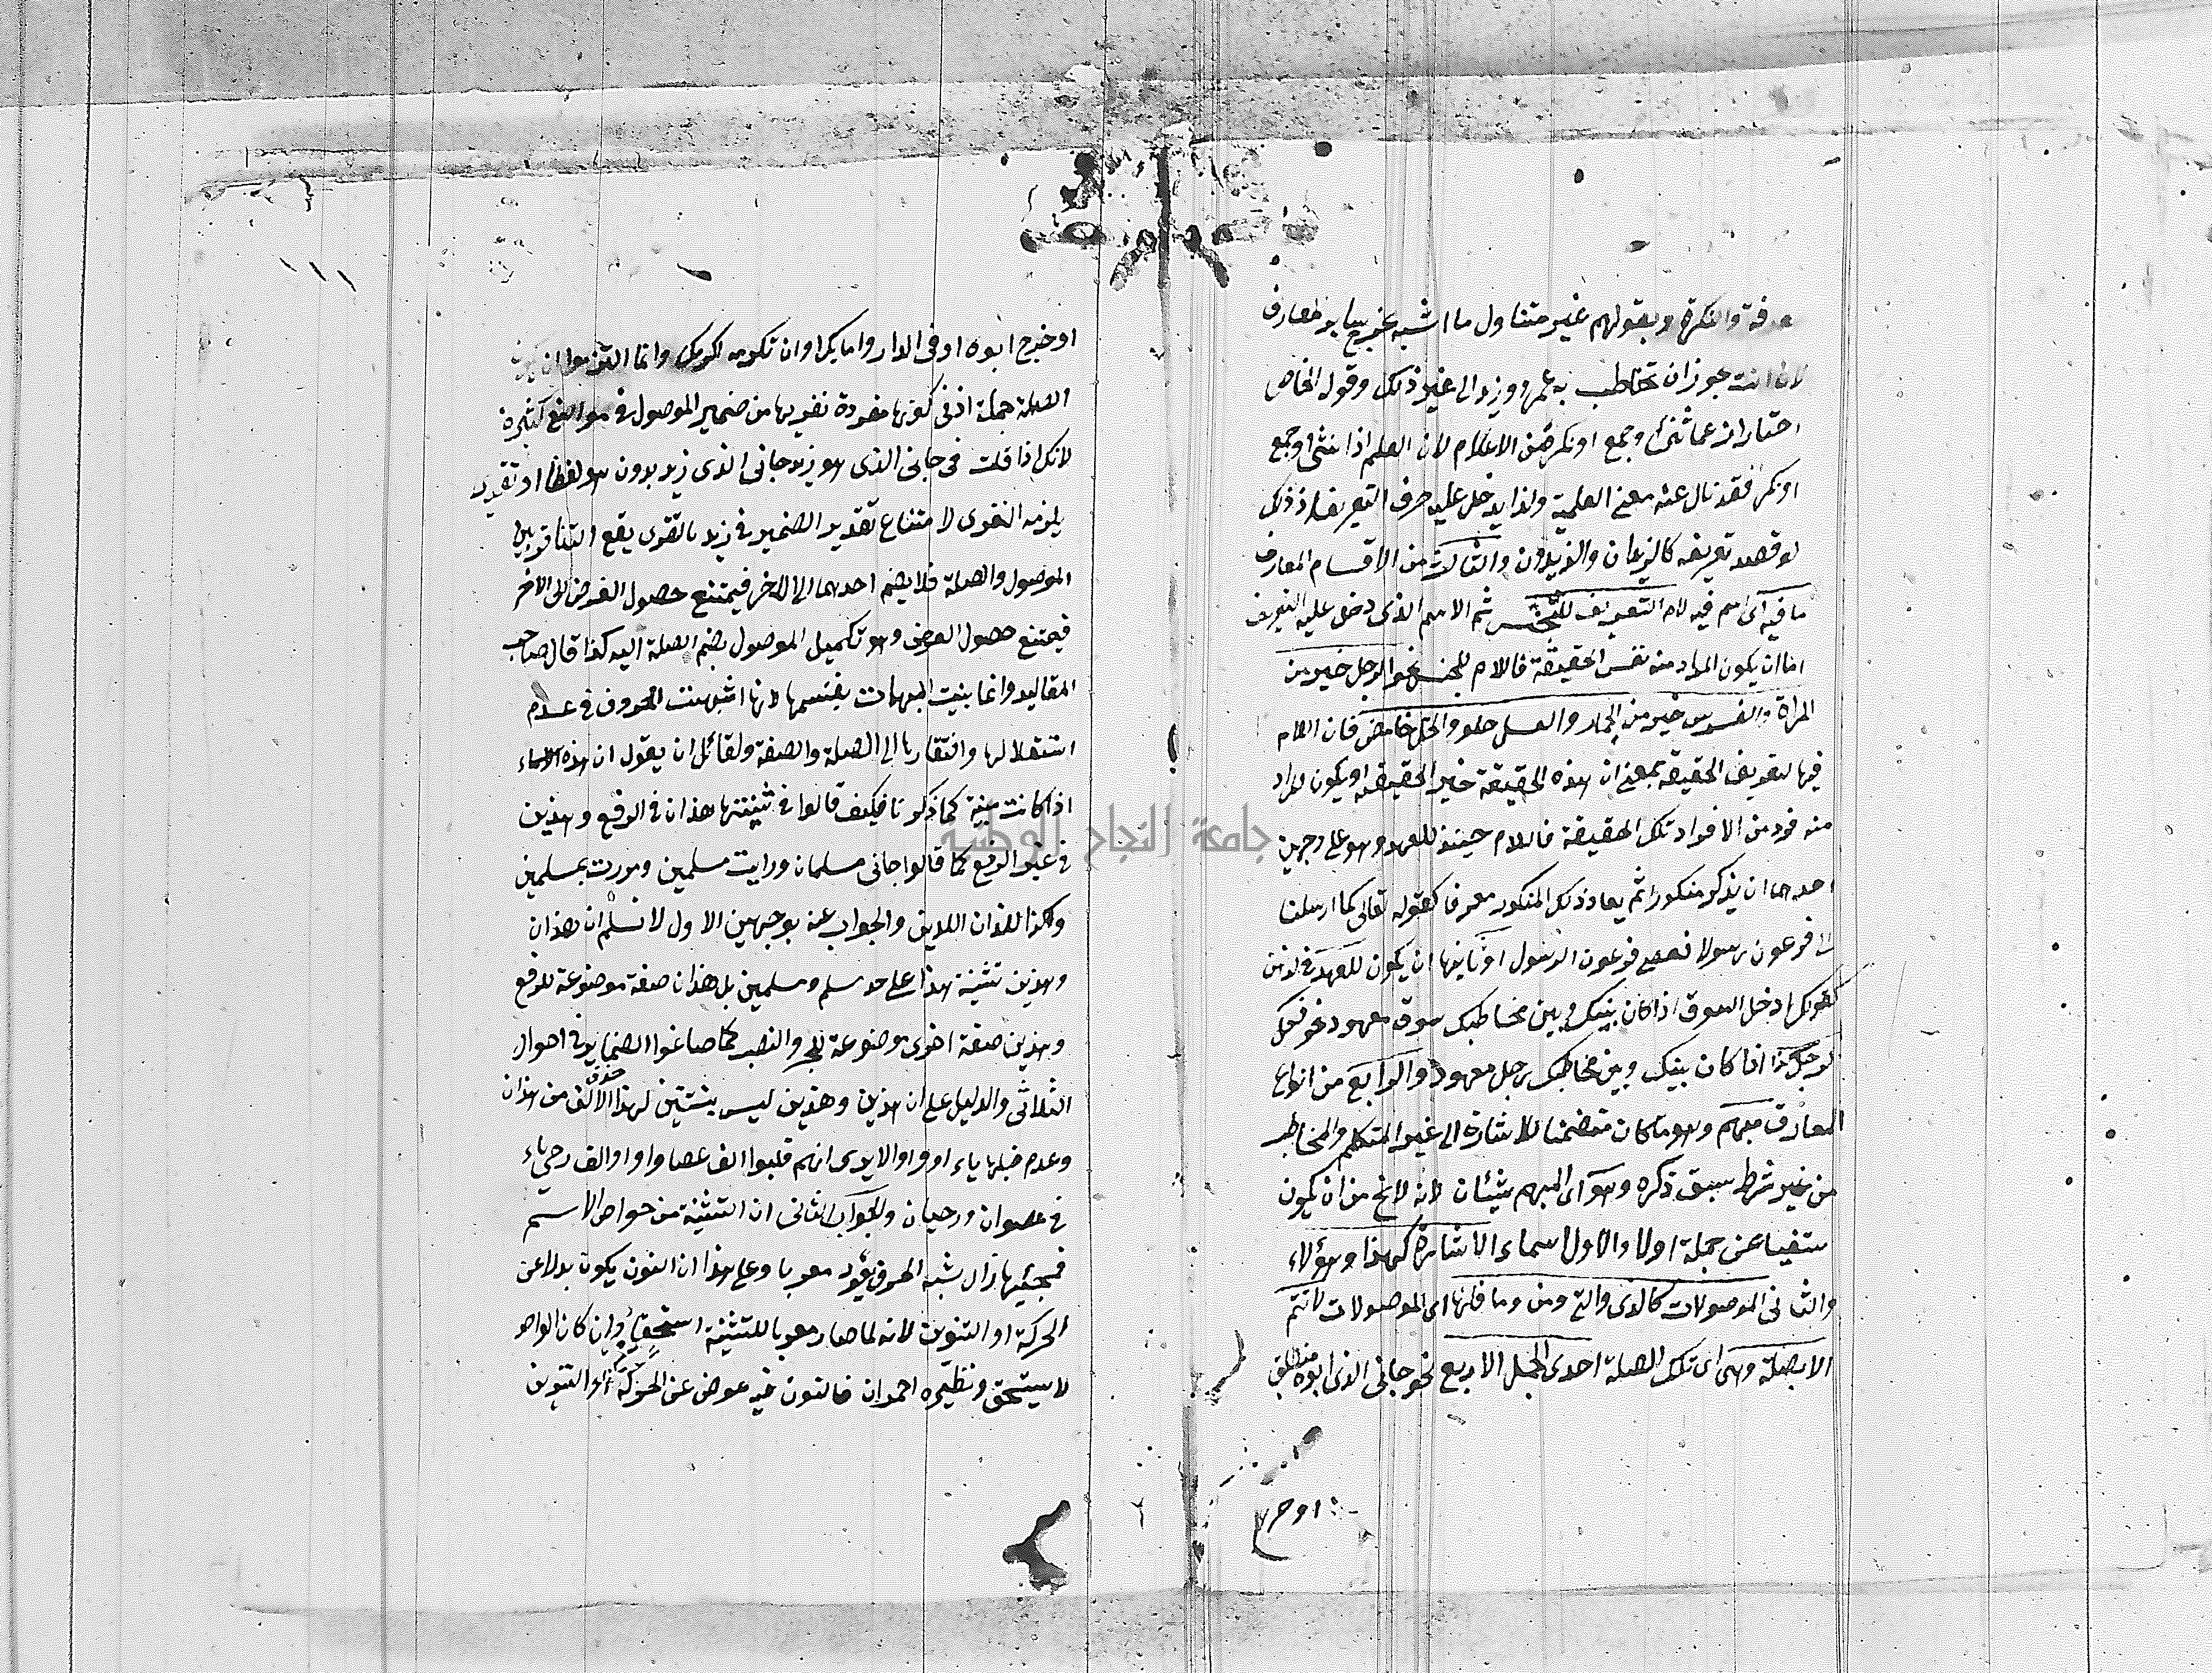 معرفة والنكرة وبقولهم غير متناول ما اشبه يخرج سائر المعارف
لان انت يجوز ان تخاطب به عمرا وزيدا الى غير ذلك وقوله الخاص
احتراز عما ثنى وجمع او نكر من الاعلام لان العلم اذا ثنى او جمع
او نكر فقد زال عنه معنى العلمية ولذا يدخل عليه حرف التعريف اذ ذلك
لو قصد تعريفه كالزيدان والزيدون والثالث من الاقسام المعارف
ما فيه اى اسم فيه لام التعريف للجنس ثم الاسم الذى دخل عليه التعريف
اما ان يكون المراد منه نفس الحقيقة فاللام للجنس نحو الرجل خير من
المراة والفرس خير من الحمار والعسل حلو والخل حامض فان اللام
فيها لتعريف الحقيقة بمعنى ان هذه الحقيقة خير الحقيقة او يكون المراد
منه فرد من الافراد تلك الحقيقة فاللام حينئذ للعهد وهو على وجهين
احدهما ان يذكر منكورا ثم يعاد ذلك المنكور معرفا كقوله تعالى كما ارسلنا
الى فرعون رسولا فعصى فرعون الرسول او ثانيها ان يكون للعهد فى الذهن
كقولك ادخل السوق اذا كان بينك وبين مخاطبك سوق معهود نحو فعل
الرجل كذا اذا كان بينك وبين مخاطبك رجل معهود والرابع من انواع
المعارف مبهم وهو ما كان متضمنا للاشارة الى غير المتكلم والمخاطب
من غير شرط سبق ذكره وهو اى المبهم شيئان لانه لا يخ من ان يكون
مستغنيا عن جملة اولا والاول اسماء الاشارة كهذا وهؤلاء
والثانى الموصولات كالذى والتى ومن وما فانها اى الموصولات لا تتم
الا بصلة وهى اى تلك الصلة احدى الجمل الاربع نحو جانى الذى ابوه منطلق
او خرج
او خرج ابوه او فى الدار واما بكرا وان تكرمه يكرمك وانما التزموا ان يكون
الصلة جملة اذ فى كونها مفردة تعريها من ضمير الموصول فى مواضع كثيرة
لانك اذا قلت فى جانى الذى هو زيد جانى الذى زيد بدون هو لفظا او تقديرا
يلزمه التعرى لامتناع تقدير الضمير فى زيد بالتعرى يقع التنافر بين
الموصول والصلة فلا يضم احدهما الى الاخر فيمتنع حصول الغرض الى الاخر
فيمتنع حصول الغرض وهو تكميل الموصول بضم الصلة اليه كذا قال صاحب
المقاليد وانما بنيت المبهمات بقسمها لانها اشبهت الحروف فى عدم
استقلالها وافتقارها الى الصلة والصفة ولقائل ان يقول ان هذه الاسماء
اذا كانت مبنية كما ذكرنا فكيف قالوا فى تثنيتها هذان فى الرفع وهذين
فى غير الرفع كما قالوا جانى مسلمان ورايت مسلمين ومررت بمسلمين
وكذا اللذان اللذين والجواب عنه بوجهين الاول لا نسلم ان هذان
وهذين تثنية هذا على حد مسلم ومسلمين بل هذان صيغة موضوعة للرفع
وهذين صيغة اخرى موضوعة للجر والنصب كما صاغوا الضماير فى احوال
الثلاثى والدليل على ان هذين وهذين ليس بتثنيتين لهذا حذف الالف من هذان
وعدم قبلها ياء او واو الا يرى انهم قلبوا الف عصا واوا والف رحى ياء
فى عصوان ورحيان والجواب الثانى ان التثنية من خواص الاسم
فبمجئيها زال شبه الحرف فيعود معربا وعلى هذا ان النون يكون بدلا عن
الحركة او التنوين لانه لما صار معربا للتثنية استحقها وان كان الواحد
لا يستحق ونظيره احمدان فالنون فيه عوض عن الحركة او التنوين
جامعة النجاح الوطنية